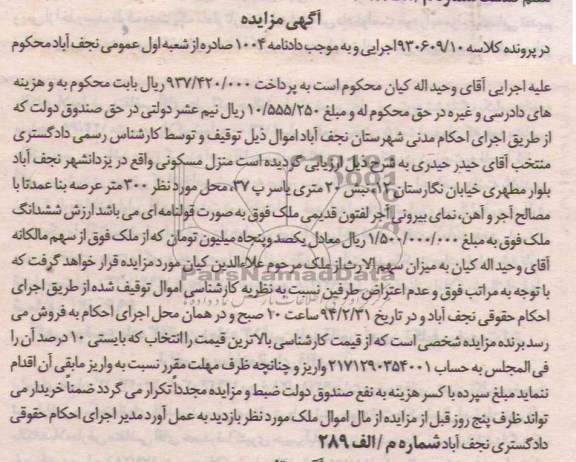 آگهی مزایده
در پرونده کلاسه ۹۳۰۶۰۹/۱۰ اجرایی و به موجب دادنامه ۱۰۰۴ صادره از شعبه اول عمومی نجف آباد محکوم
علیه اجرایی آقای وحید اله کیان محکوم است به پرداخت ۹۳۷/۴۲۰/۰۰۰ ریال بابت محکوم به و هزینه
های دادرسی و غیره در حق محکوم له و مبلغ ۱۰/۵۵۵/۲۵۰ ریال نیم عشر دولتی در حق صندوق دولت که
از طریق اجرای احکام مدنی شهرستان نجف آباد اموال ذیل توقیف و توسط کارشناس رسمی دادگستری
منتخب آقای حیدر حیدری به شرح ذیل ارزیابی گردیده است منزل مسکونی واقع در یزدانشهر نجف آباد
بلوار مطهری خیابان نگارستان ۱۲، نبش ۲۰ متری یاسر پ ۳۷، محل مورد نظر ۳۰۰ متر عرصه بنا عمدتا با
مصالح آجر و آهن، نمای بیرونی آجر لفتون قدیمی ملک فوق به صورت قولنامه ای می باشد ارزش ششدانگ
ملک فوق به مبلغ ۱/۵۰۰/۰۰۰/۰۰۰ ریال معادل یکصد و پنجاه میلیون تومان که از ملک فوق از سهم مالکانه
آقای وحید اله کیان به میزان سهم الارث از ملک مرحوم علاءالدین کیان مورد مزایده قرار خواهد گرفت که
با توجه به مراتب فوق و عدم اعتراض طرفین نسبت به نظریه کارشناسی اموال توقیف شده از طریق اجرای
احکام حقوقی نجف آباد و در تاریخ ۹۴/۲/۳۱ ساعت ۱۰ صبح و در همان محل اجرای احکام به فروش می
رسد برنده مزایده شخصی است که از قیمت کارشناسی بالاترین قیمت را انتخاب که بایستی ۱۰ درصد آن را
فی المجلس به حساب ۲۱۷۱۲۹۰۳۵۴۰۰۱ واریز و چنانچه ظرف مهلت مقرر نسبت به واریز مابقی آن اقدام
ننماید مبلغ سپرده با کسر هزینه به نفع صندوق دولت ضبط و مزایده مجددا تکرار می گردد ضمنا خریدار می
تواند ظرف پنج روز قبل از مزایده از مال اموال ملک مورد نظر بازدید به عمل آورد مدیر اجرای احکام حقوقی
دادگستری نجف آباد شماره م /الف ۲۸۹
ParsNamadData